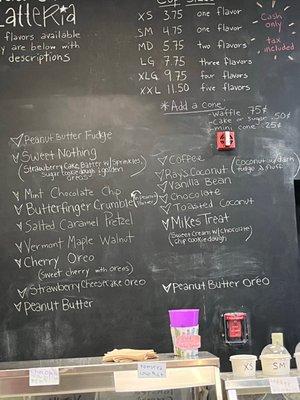 LatteRia
flavors available
y are below with
descriptions
Cup Sizes
XS 3.75 one flavor
SM 4.75 one flavor
MD 5.75 two flavors
LG 7.75 three flavors
XLG 9.75 four flavors
XXL 11.50 five flavors
*Add a cone
-Waffle 75¢
-Cake or sugar .50¢
-mini cone .25¢
Cash
only
tax
included
Peanut Butter Fudge
Sweet Nothing
(Strawberry Cake Batter w/ Sprinkles,
Sugar cookie dough & golden
oreos)
Mint Chocolate Chip
Butterfinger Crumble
Salted Caramel Pretzel
Vermont Maple Walnut
Cherry Oreo
(sweet cherry with oreos)
Strawberry Cheesecake Oreo
Peanut Butter
Coffee
Ray's Coconut (Coconut w/ dark
fudge & fluff)
Vanilla Bean
Chocolate
Toasted Coconut
Mikes Treat
(Sweet Cream w/ chocolate
chip cookie dough)
Peanut Butter Oreo
XS
SM